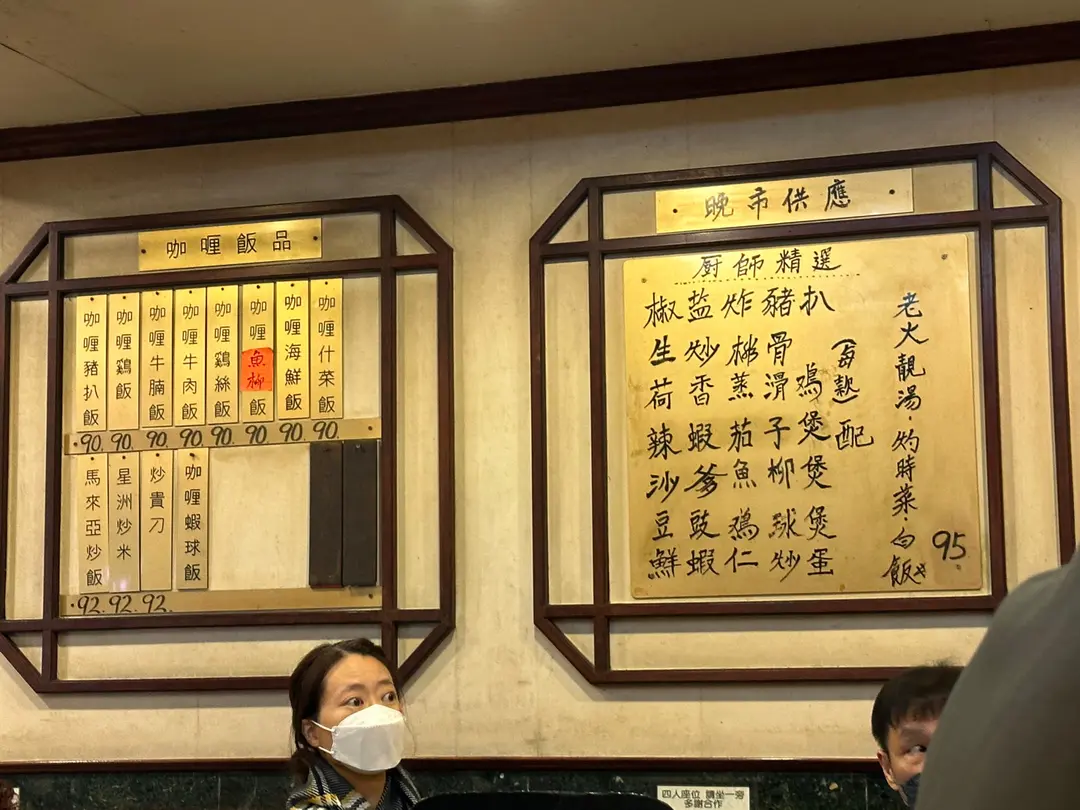 咖喱飯品
咖喱豬扒飯
咖喱鷄飯
咖喱牛腩飯
咖喱牛肉飯
咖喱鷄絲飯
咖喱魚柳飯
咖喱海鮮飯
咖喱什菜飯
90. 90. 90. 90. 90. 90. 90. 90.
馬來亞炒飯
星洲炒米
炒貴刀
咖喱蝦球飯
92. 92. 92.
晚市供應
厨師精選
椒盐炸豬扒
生炒排骨
荷香蒸滑鸡煲
辣蝦茄子煲
沙爹魚柳煲
豆豉鸡球煲
鮮蝦仁炒蛋
(每款)配
老火靚湯·灼時菜·白飯
95
四人座位 請坐一旁
多謝合作